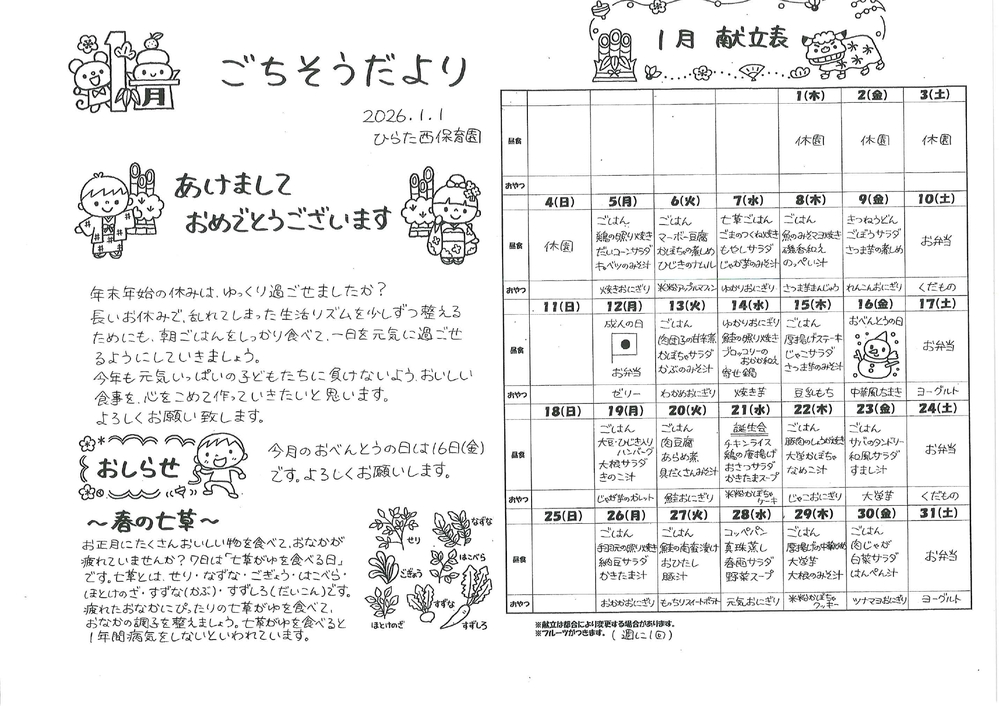 月
ごちそうだより
2026.1.1
ひらた西保育園
あけまして
おめでとうございます
年末年始の休みは、ゆっくり過ごせましたか？
長いお休みで、乱れてしまった生活リズムを少しずつ整える
ためにも、朝ごはんをしっかり食べて、一日を元気に過ごせ
るようにしていきましょう。
今年も元気いっぱいの子どもたちに負けないよう、おいしい
食事を、心をこめて作っていきたいと思います。
よろしくお願い致します。
おしらせ
今月のおべんとうの日は16日(金)
です。よろしくお願いします。
～春の七草～
お正月にたくさんおいしい物を食べて、おなかが
疲れていませんか？7日は「七草がゆを食べる日」
です。七草とは、せり・なずな・ごぎょう・はこべら・
ほとけのざ・すずな(かぶ)・すずしろ(だいこん)です。
疲れたおなかにぴったりの七草がゆを食べて、
おなかの調子を整えましょう。七草がゆを食べると
1年間病気をしないといわれています。
せり
なずな
ごぎょう
はこべら
ほとけのざ
すずな
すずしろ
1月 献立表
1(木) 2(金) 3(土)
昼食 休園 休園 休園
おやつ
4(日) 5(月) 6(火) 7(水) 8(木) 9(金) 10(土)
昼食
休園
ごはん
鶏の照り焼き
だいコーンサラダ
キャベツのみそ汁
ごはん
マーボー豆腐
かぼちゃの煮しめ
ひじきのナムル
七草ごはん
ごまのつくね焼き
もやしサラダ
じゃが芋のみそ汁
ごはん
魚のみそマヨ焼き
磯香和え
のっぺい汁
きつねうどん
ごぼうサラダ
さつま芋の煮しめ
お弁当
おやつ 焼きおにぎり 米粉アップルマフィン ゆかりおにぎり さつま芋まんじゅう れんこんおにぎり くだもの
11(日) 12(月) 13(火) 14(水) 15(木) 16(金) 17(土)
昼食
成人の日
お弁当
ごはん
肉団子の甘辛煮
かぼちゃサラダ
かぶのみそ汁
ゆかりおにぎり
鮭の照り焼き
ブロッコリーの
おかか和え
寄せ鍋
ごはん
厚揚げステーキ
じゃこサラダ
さつま芋のみそ汁
おべんとうの日
お弁当
おやつ ゼリー わかめおにぎり 焼き芋 豆乳もち 中華風ちまき ヨーグルト
18(日) 19(月) 20(火) 21(水) 22(木) 23(金) 24(土)
昼食
ごはん
大豆・ひじき入り
ハンバーグ
大根サラダ
きのこ汁
ごはん
肉豆腐
あらめ煮
具だくさんみそ汁
誕生会
チキンライス
鶏の唐揚げ
おさつサラダ
かきたまスープ
ごはん
豚肉のしょうが焼き
大学かぼちゃ
なめこ汁
ごはん
サバのタンドリー
和風サラダ
すまし汁
お弁当
おやつ じゃが芋のガレット 鮭おにぎり 米粉かぼちゃ
ケーキ じゃこおにぎり 大学芋 くだもの
25(日) 26(月) 27(火) 28(水) 29(木) 30(金) 31(土)
昼食
ごはん
手羽元の照り焼き
納豆サラダ
かきたま汁
ごはん
鮭の南蛮漬け
おひたし
豚汁
コッペパン
真珠蒸し
春雨サラダ
野菜スープ
ごはん
厚揚げの中華炒め
大学芋
大根のみそ汁
ごはん
肉じゃが
白菜サラダ
はんぺん汁
お弁当
おやつ おかかおにぎり もっちりスイートポテト 元気おにぎり 米粉かぼちゃ
クッキー ツナマヨおにぎり ヨーグルト
※献立は都合により変更する場合があります。
※フルーツがつきます。(週に1回)